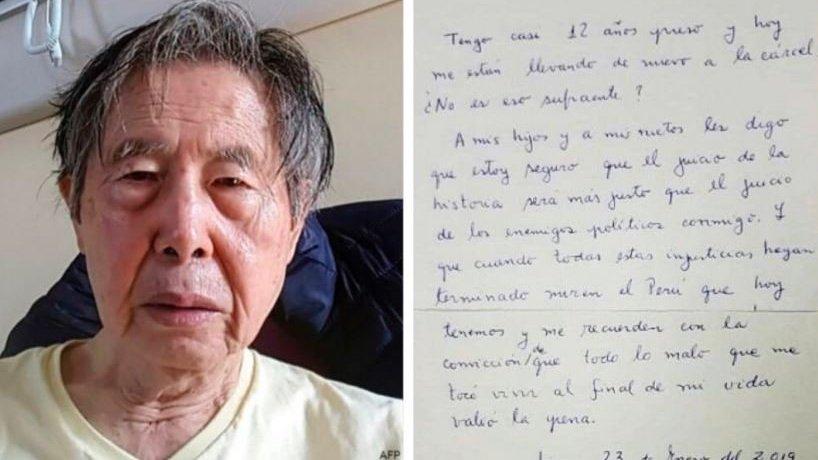 Tengo casi 12 años preso y hoy
me están llevando de nuevo a la cárcel
¿No es eso suficiente?
A mis hijos y a mis nietos les digo
que estoy seguro que el juicio de la
historia será más justo que el juicio
de los enemigos políticos conmigo. Y
que cuando todas estas injusticias hayan
terminado miren el Perú que hoy
tenemos y me recuerden con la
convicción/de que todo lo malo que me
tocó vivir al final de mi vida
valió la pena.
23 de Enero del 2019
AFP